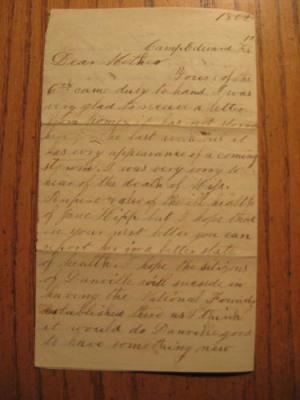 1862
Camp Edward
Dear Mother
Yours of the
6th came duly to hand. I was
very glad to receive a letter
from home, it has not stormed
here The last week but it
has every appearance of a coming
storm. I was very sorry to
hear of the death of Miss.
and also of the ill health
of Jane Hipp but I hope that
in your next letter you can
report her in a better state
of health. I hope the citizens
of Danville will suceede in
having the National Foundry
established there as I think
it would do Danville good
to have something new